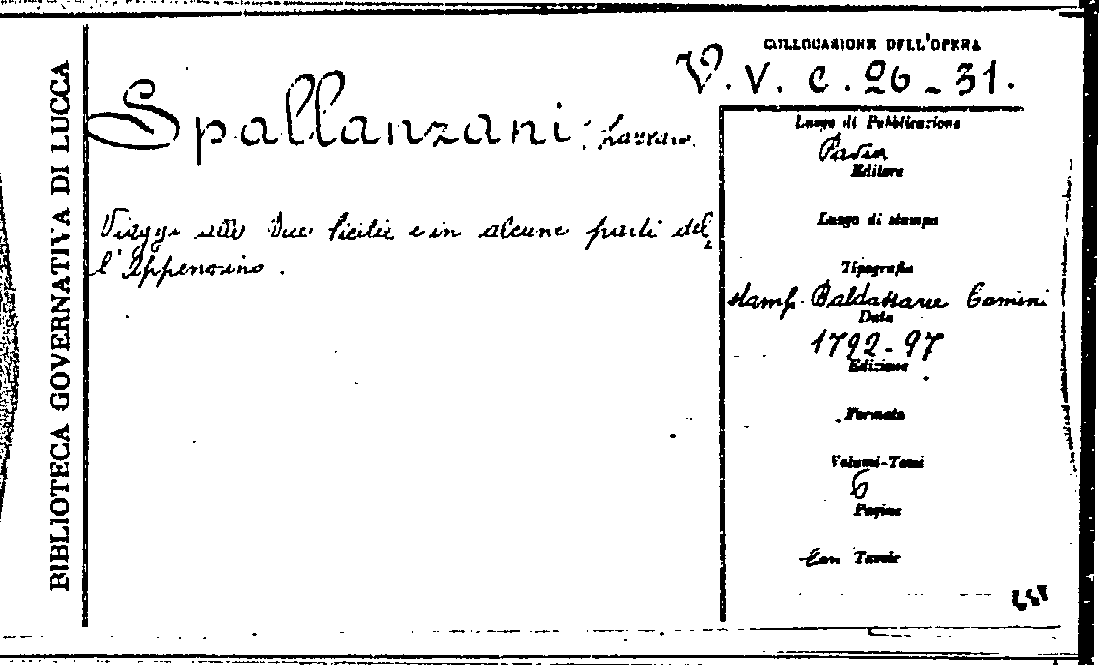 BIBLIOTECA GOVERNATIVA DI LUCCA
COLLOCAZIONE DELL'OPERA
V. V. C. 26 - 31.
Spallanzani, Lazzaro.
Viaggi alle Due Sicilie e in alcune parti del
l'Appennino.
Luogo di Pubblicazione
Pavia
Editore
Luogo di stampa
Tipografia
stamp. Baldassare Comini
Data
1792-97
Edizione
Formato
Volumi-Tomi
6
Pagine
Con Tavole